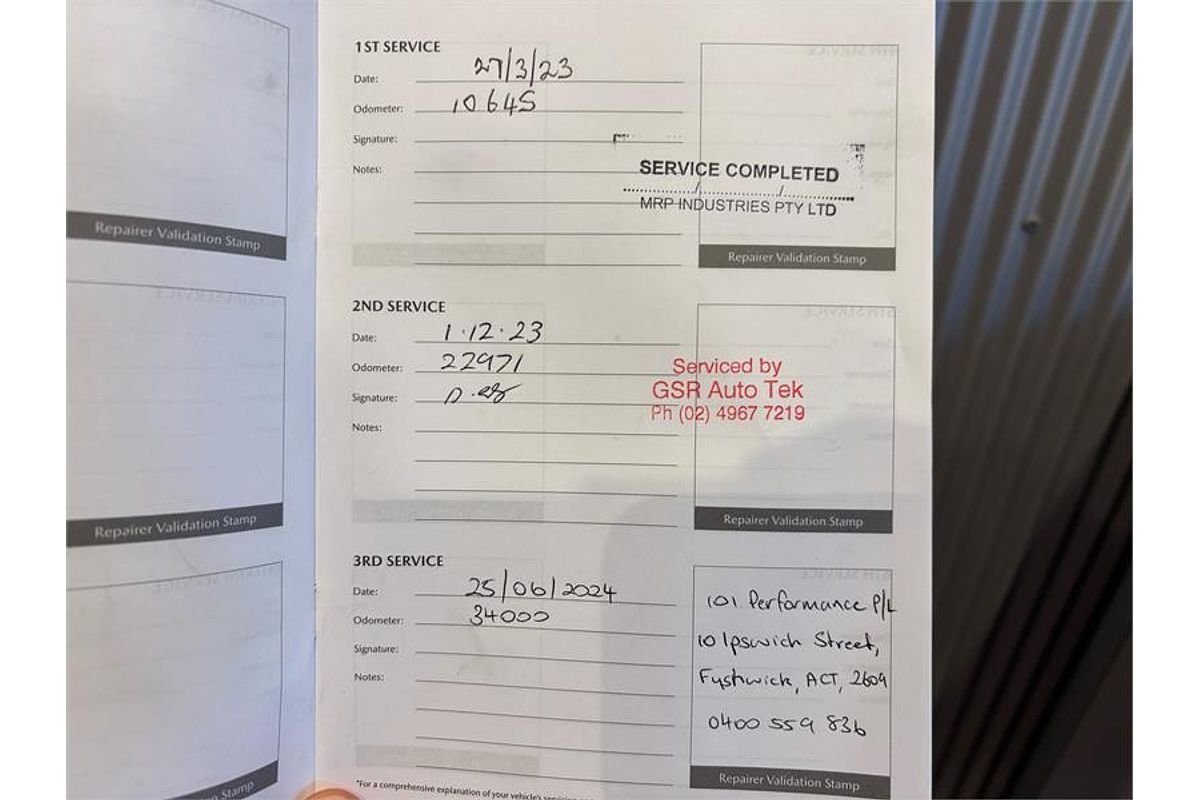 Repairer Validation Stamp
Repairer Validation Stamp
Stamp
1ST SERVICE
Date: 27/3/23
Odometer: 10645
Signature:
Notes:
SERVICE COMPLETED
MRP INDUSTRIES PTY LTD
Repairer Validation Stamp
2ND SERVICE
Date: 1.12.23
Odometer: 22971
Signature:
Notes:
Serviced by
GSR Auto Tek
Ph (02) 4967 7219
Repairer Validation Stamp
3RD SERVICE
Date: 25/06/2024
Odometer: 34000
Signature:
Notes:
101 Performance P/L
10 Ipswich Street,
Fyshwick, ACT, 2609
0400 559 836
Repairer Validation Stamp
*For a comprehensive explanation of your vehicle's